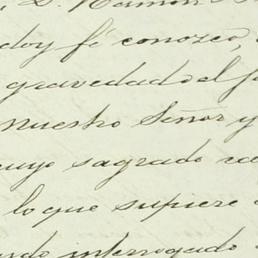 D. Ramon
doy fé conozco,
gravedad del
nuestro Señor y
cuyo sagrado
lo que supiere
interrogado